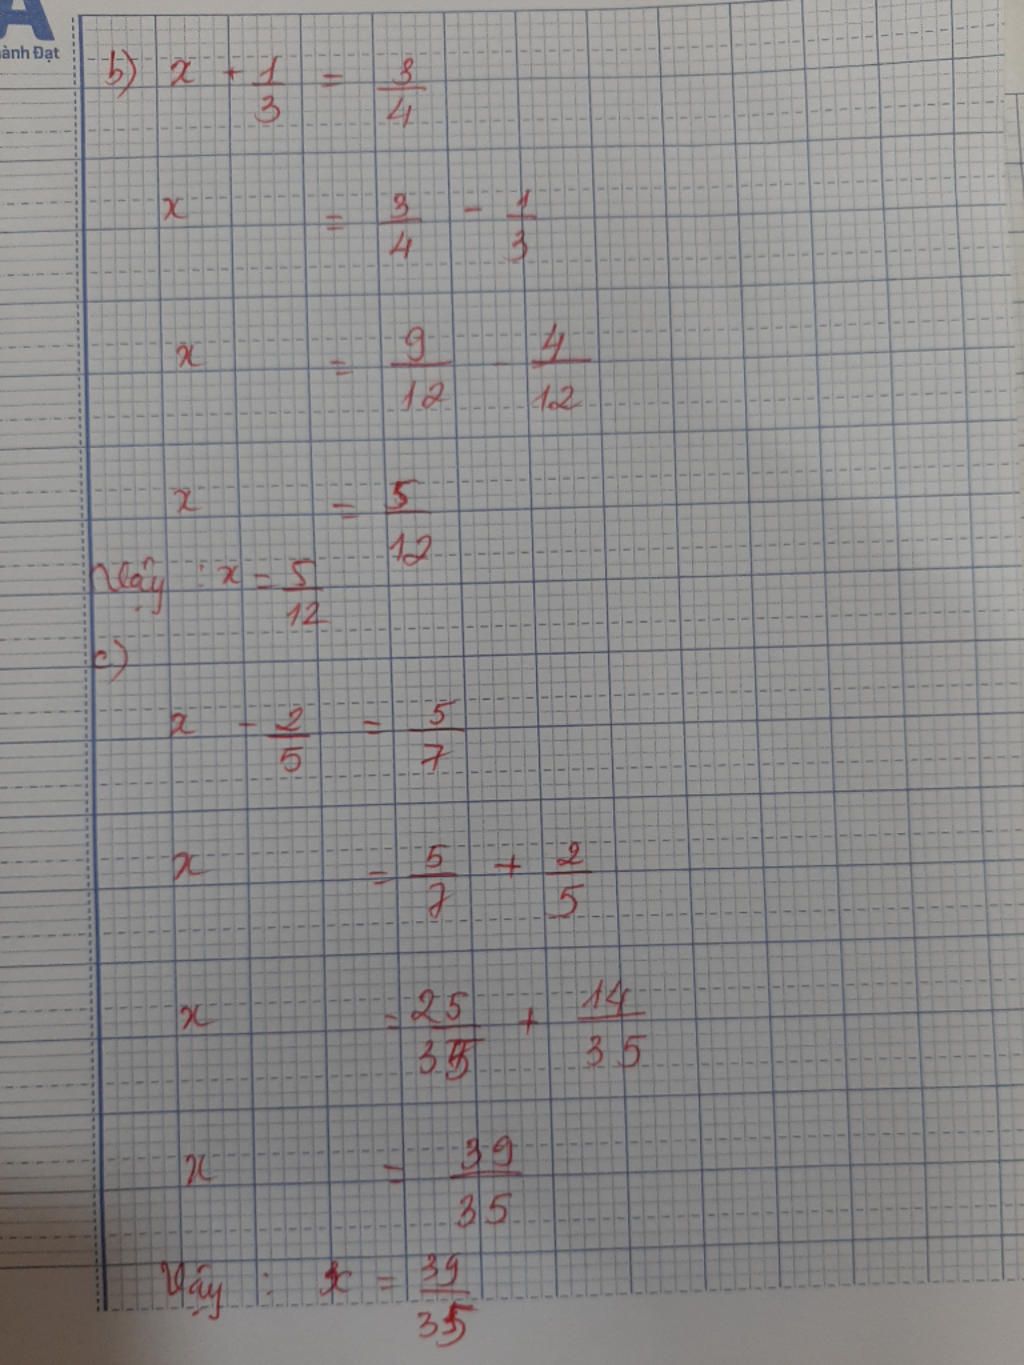 A
ành Đạt
b) x + 1/3 = 3/4
x = 3/4 - 1/3
x = 9/12 - 4/12
x = 5/12
Vậy : x = 5/12
c)
x - 2/5 = 5/7
x = 5/7 + 2/5
x = 25/35 + 14/35
x = 39/35
Vậy : x = 39/35